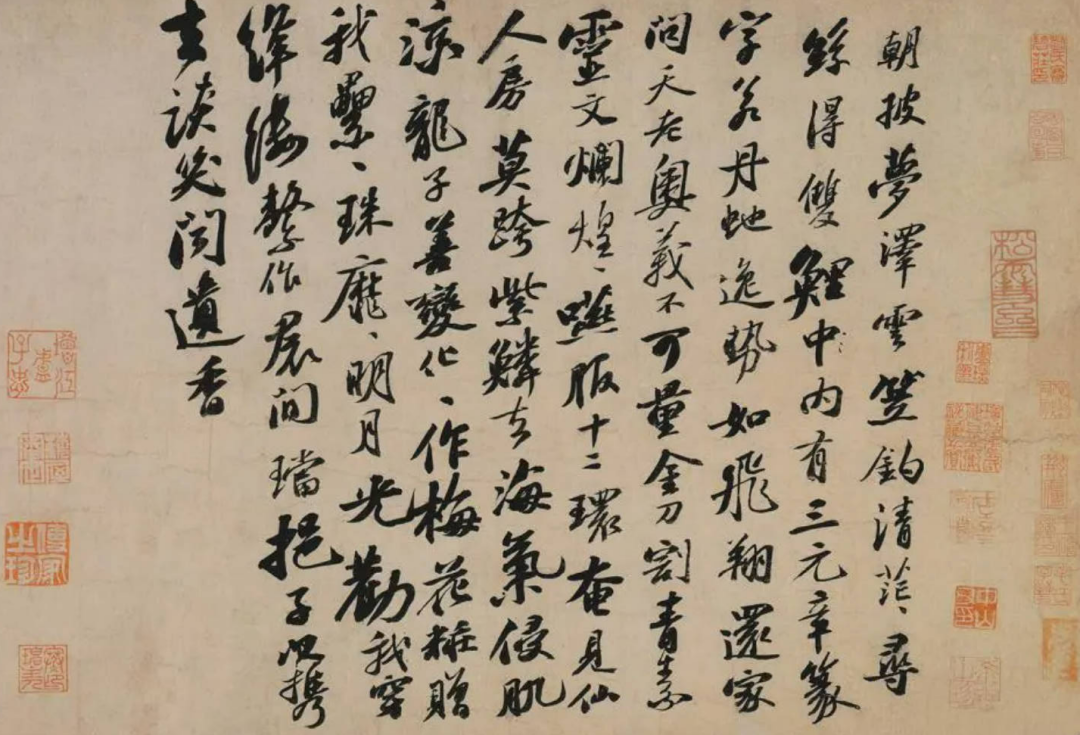 朝披夢澤雲笠釣清茫〻尋
絲得雙鯉中〻內有三元章篆
字若丹虵逸勢如飛翔還家
問天老奧義不可量金刀割青素
靈文爛煌〻嚥服十二環奄見仙
人房莫跨紫鱗去海氣侵肌
涼龍子善變化〻作梅花粧贈
我纍〻珠靡〻明月光勸我穿
絳縷繫作裙間璫挹子以攜
去談笑聞遺香